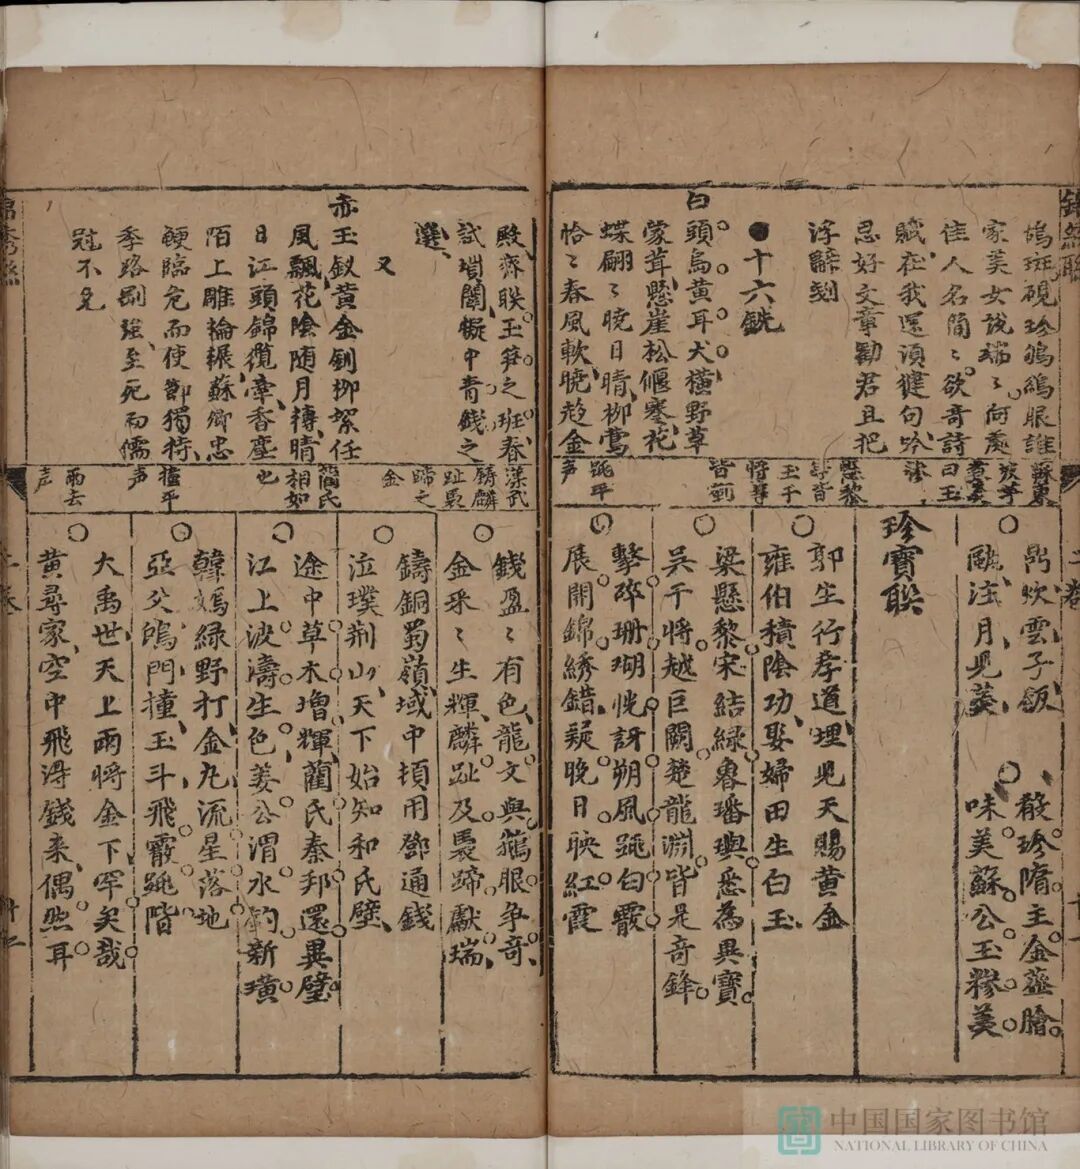 鴝斑硯珍鴝鵒眼誰
家美女說端〻何處
佳人名簡〻欲奇詩
賦在我還須健句吟
忌好文章勸君且把
浮辭刻
●十六銑
白頭烏黃耳犬橫野草
蒙茸懸崖松偃蹇花
蝶翩〻曉日晴柳鶯
恰〻春風軟曉趍金
曰玉
皆剪
跳平
声
鼎炊雲子飯
甌泛月兒羮
殽珍隋主金虀膾
味美蘇公玉糝羮
珍寶联
郭生行孝道埋児天賜黃金
雍伯積陰功娶婦田生白玉
梁懸黎宋結緑魯璠璵悉為異寶
吳干將越巨闕楚龍淵皆是奇鋒
擊碎珊瑚恍訝朔風跳白霰
展開錦綉錯疑晚日映紅霞
殿齊聫玉笋之班春
試塤闈擬中青錢之
選
又
赤玉釵黃金釧柳絮任
風飄花陰随月轉晴
日江頭錦纜牽香塵
陌上雕輪輾蘇卿忠
鯁臨危而使節獨持
季路剛強至死而儒
冠不免
漢武
鑄麟
趾褭
蹄之
金
藺氏
相如
也
撞平
声
雨去
声
錢盈〻有色龍文與鵝眼争奇
金釆〻生輝麟趾及褭蹄獻瑞
鑄銅蜀嶺域中頂用鄧通錢
泣璞荆山天下始知和氏璧
途中草木增輝藺氏秦邦還異璧
江上波濤生色姜公渭水釣新璜
韓嫣緑野打金丸流星落地
亞父鴻門撞玉斗飛霰跳階
大禹世天上雨將金下罕矣哉
黃尋家空中飛淂錢来偶然耳
中国国家图书馆
NATIONAL LIBRARY OF CHINA